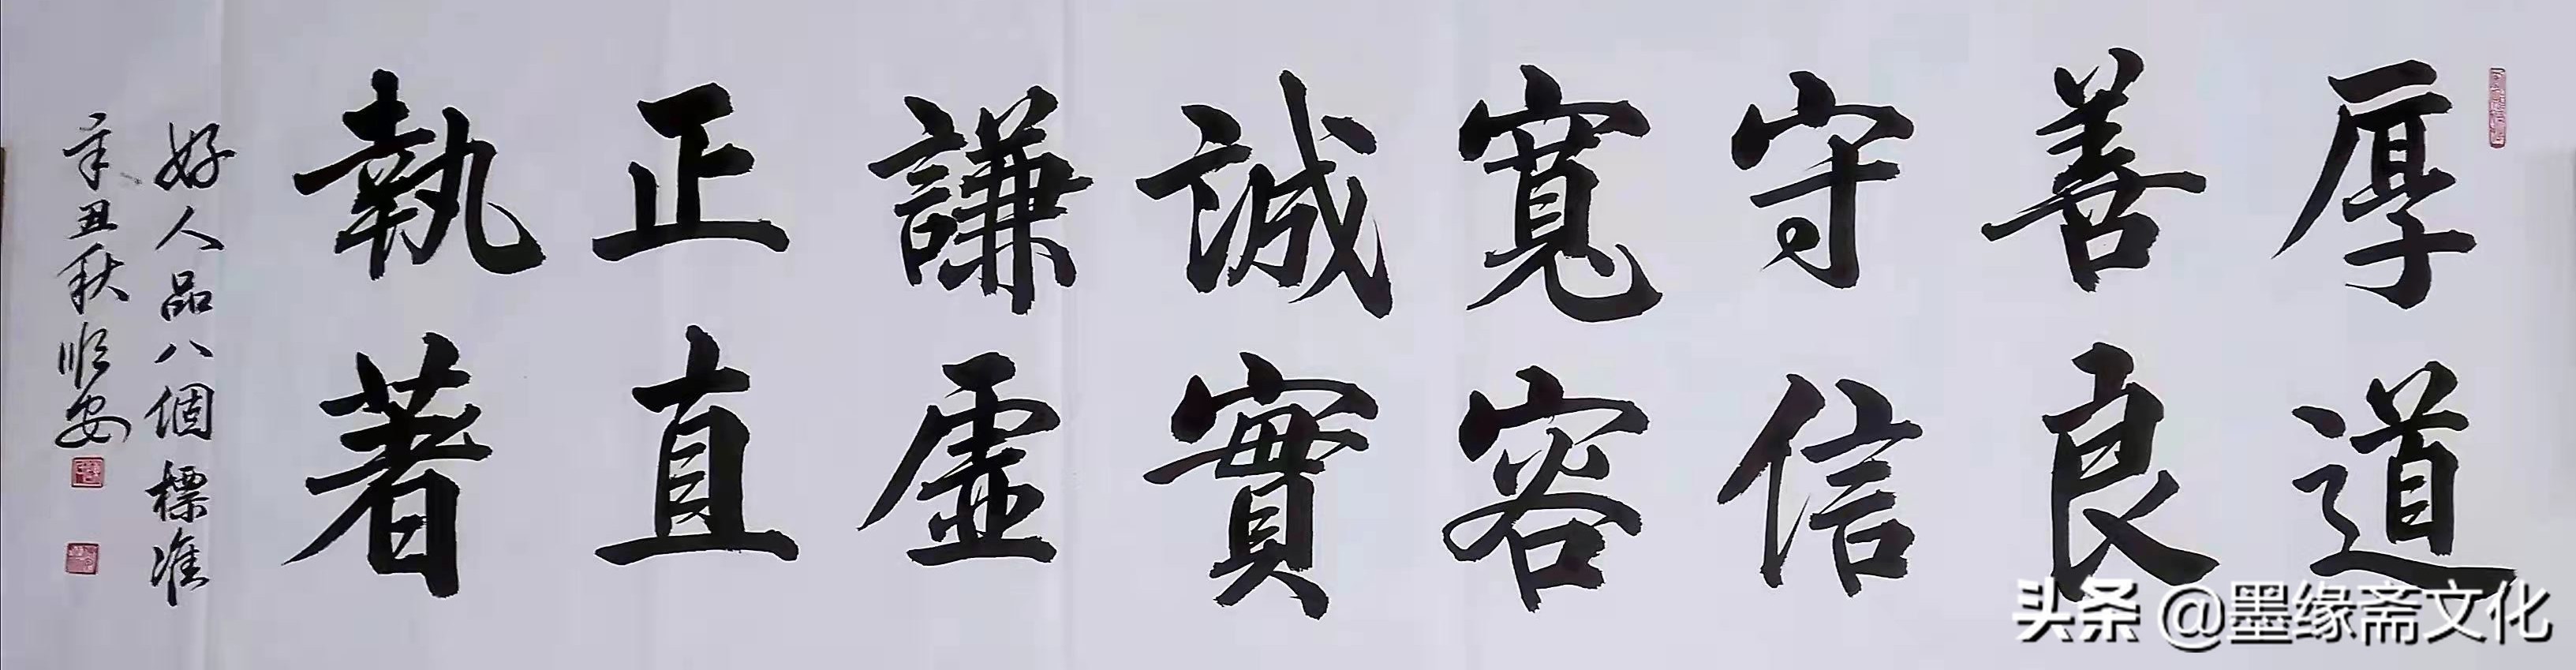 厚道
善良
守信
寬容
誠實
謙虛
正直
執著
好人品八個標准
辛丑秋順安
头条 @墨缘斋文化